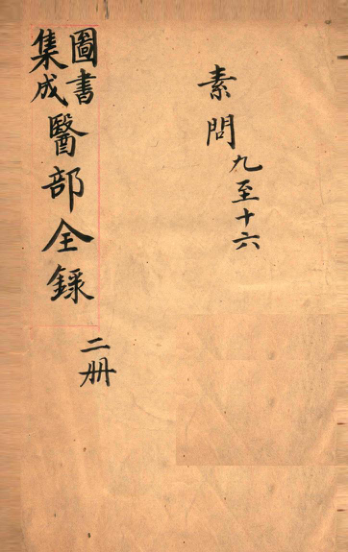 素問九至十六
圖書
集成
醫部全錄
二册